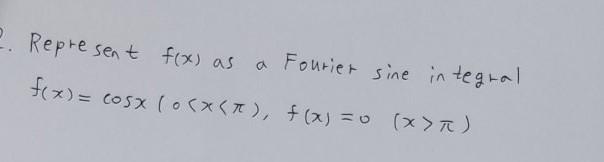 2. Represent f(x) as a Fourier sine integral
f(x) = cosx (0<x<π), f(x) = 0 (x>π)